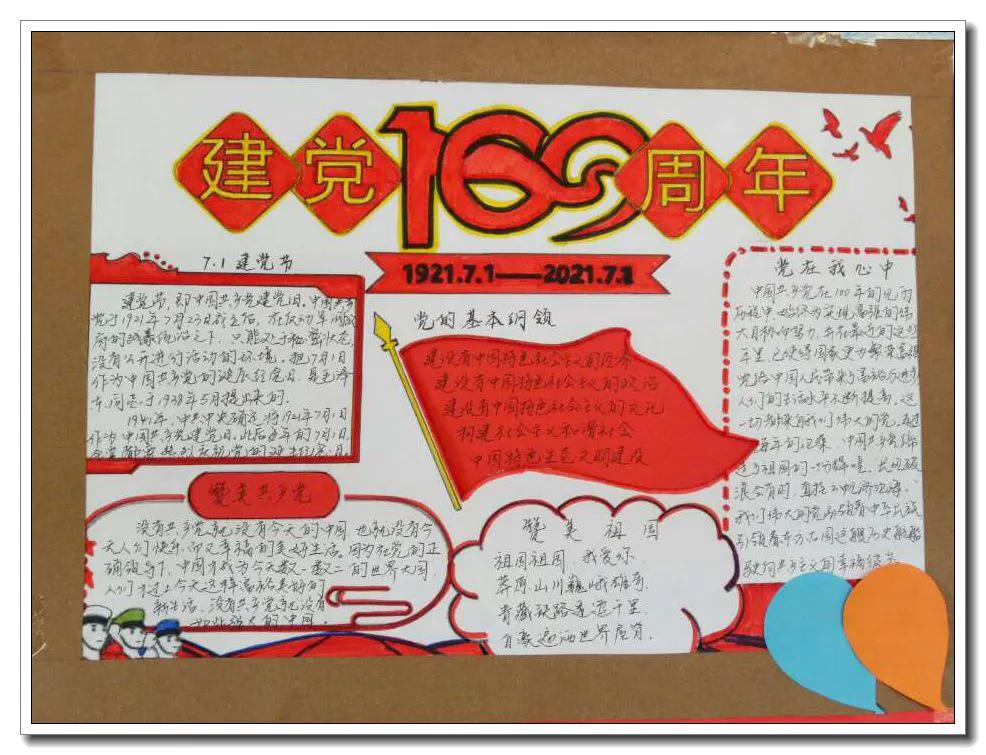 建党100周年
1921.7.1——2021.7.1
7.1 建党节
建党节即中国共产党建党日，中国共产
党于1921年7月23日成立后，在反动军阀政
府的残暴统治之下，只能处于秘密状态，
没有公开进行活动的环境。把7月1日
作为中国共产党的诞辰纪念日，是毛泽
东同志于1938年5月提出来的。
1941年，中共中央确定将1921年7月1日
作为中国共产党建党日，此后每年的7月1日，
全党都要热烈庆祝党的建立纪念日
赞美共产党
没有共产党就没有今天的中国，也就没有今
天人们快乐而又幸福的美好生活。因为在党的正
确领导下，中国才成为今天数一数二的世界大国，
人们才过上今天这样富裕美好的
新生活，没有共产党就没有
如此强大的中国。
党的基本纲领
建设有中国特色社会主义的经济
建设有中国特色社会主义的政治
建设有中国特色社会主义的文化
构建社会主义和谐社会
中国特色生态文明建设
赞美祖国
祖国祖国，我爱你，
莽原山川巍峨雄奇，
青藏铁路遥遥千里，
自豪遍洒世界屋脊。
党在我心中
中国共产党在100年的风雨
历程中，始终为实现高强的伟
大目标而努力，并在最近的这些
年里，已使得国家更为繁荣富强
党给中国人民带来了富裕及进步
人们的水平不断提高，这
一切都来自我们伟大的党，在
每年的记录，中国共产党缔
造了祖国的一切辉煌，长风破
浪会有时，直挂云帆济沧海。
我们伟大的党引领着中华民族
引领着东方古国这艘历史航船
驶向共产主义的幸福彼岸